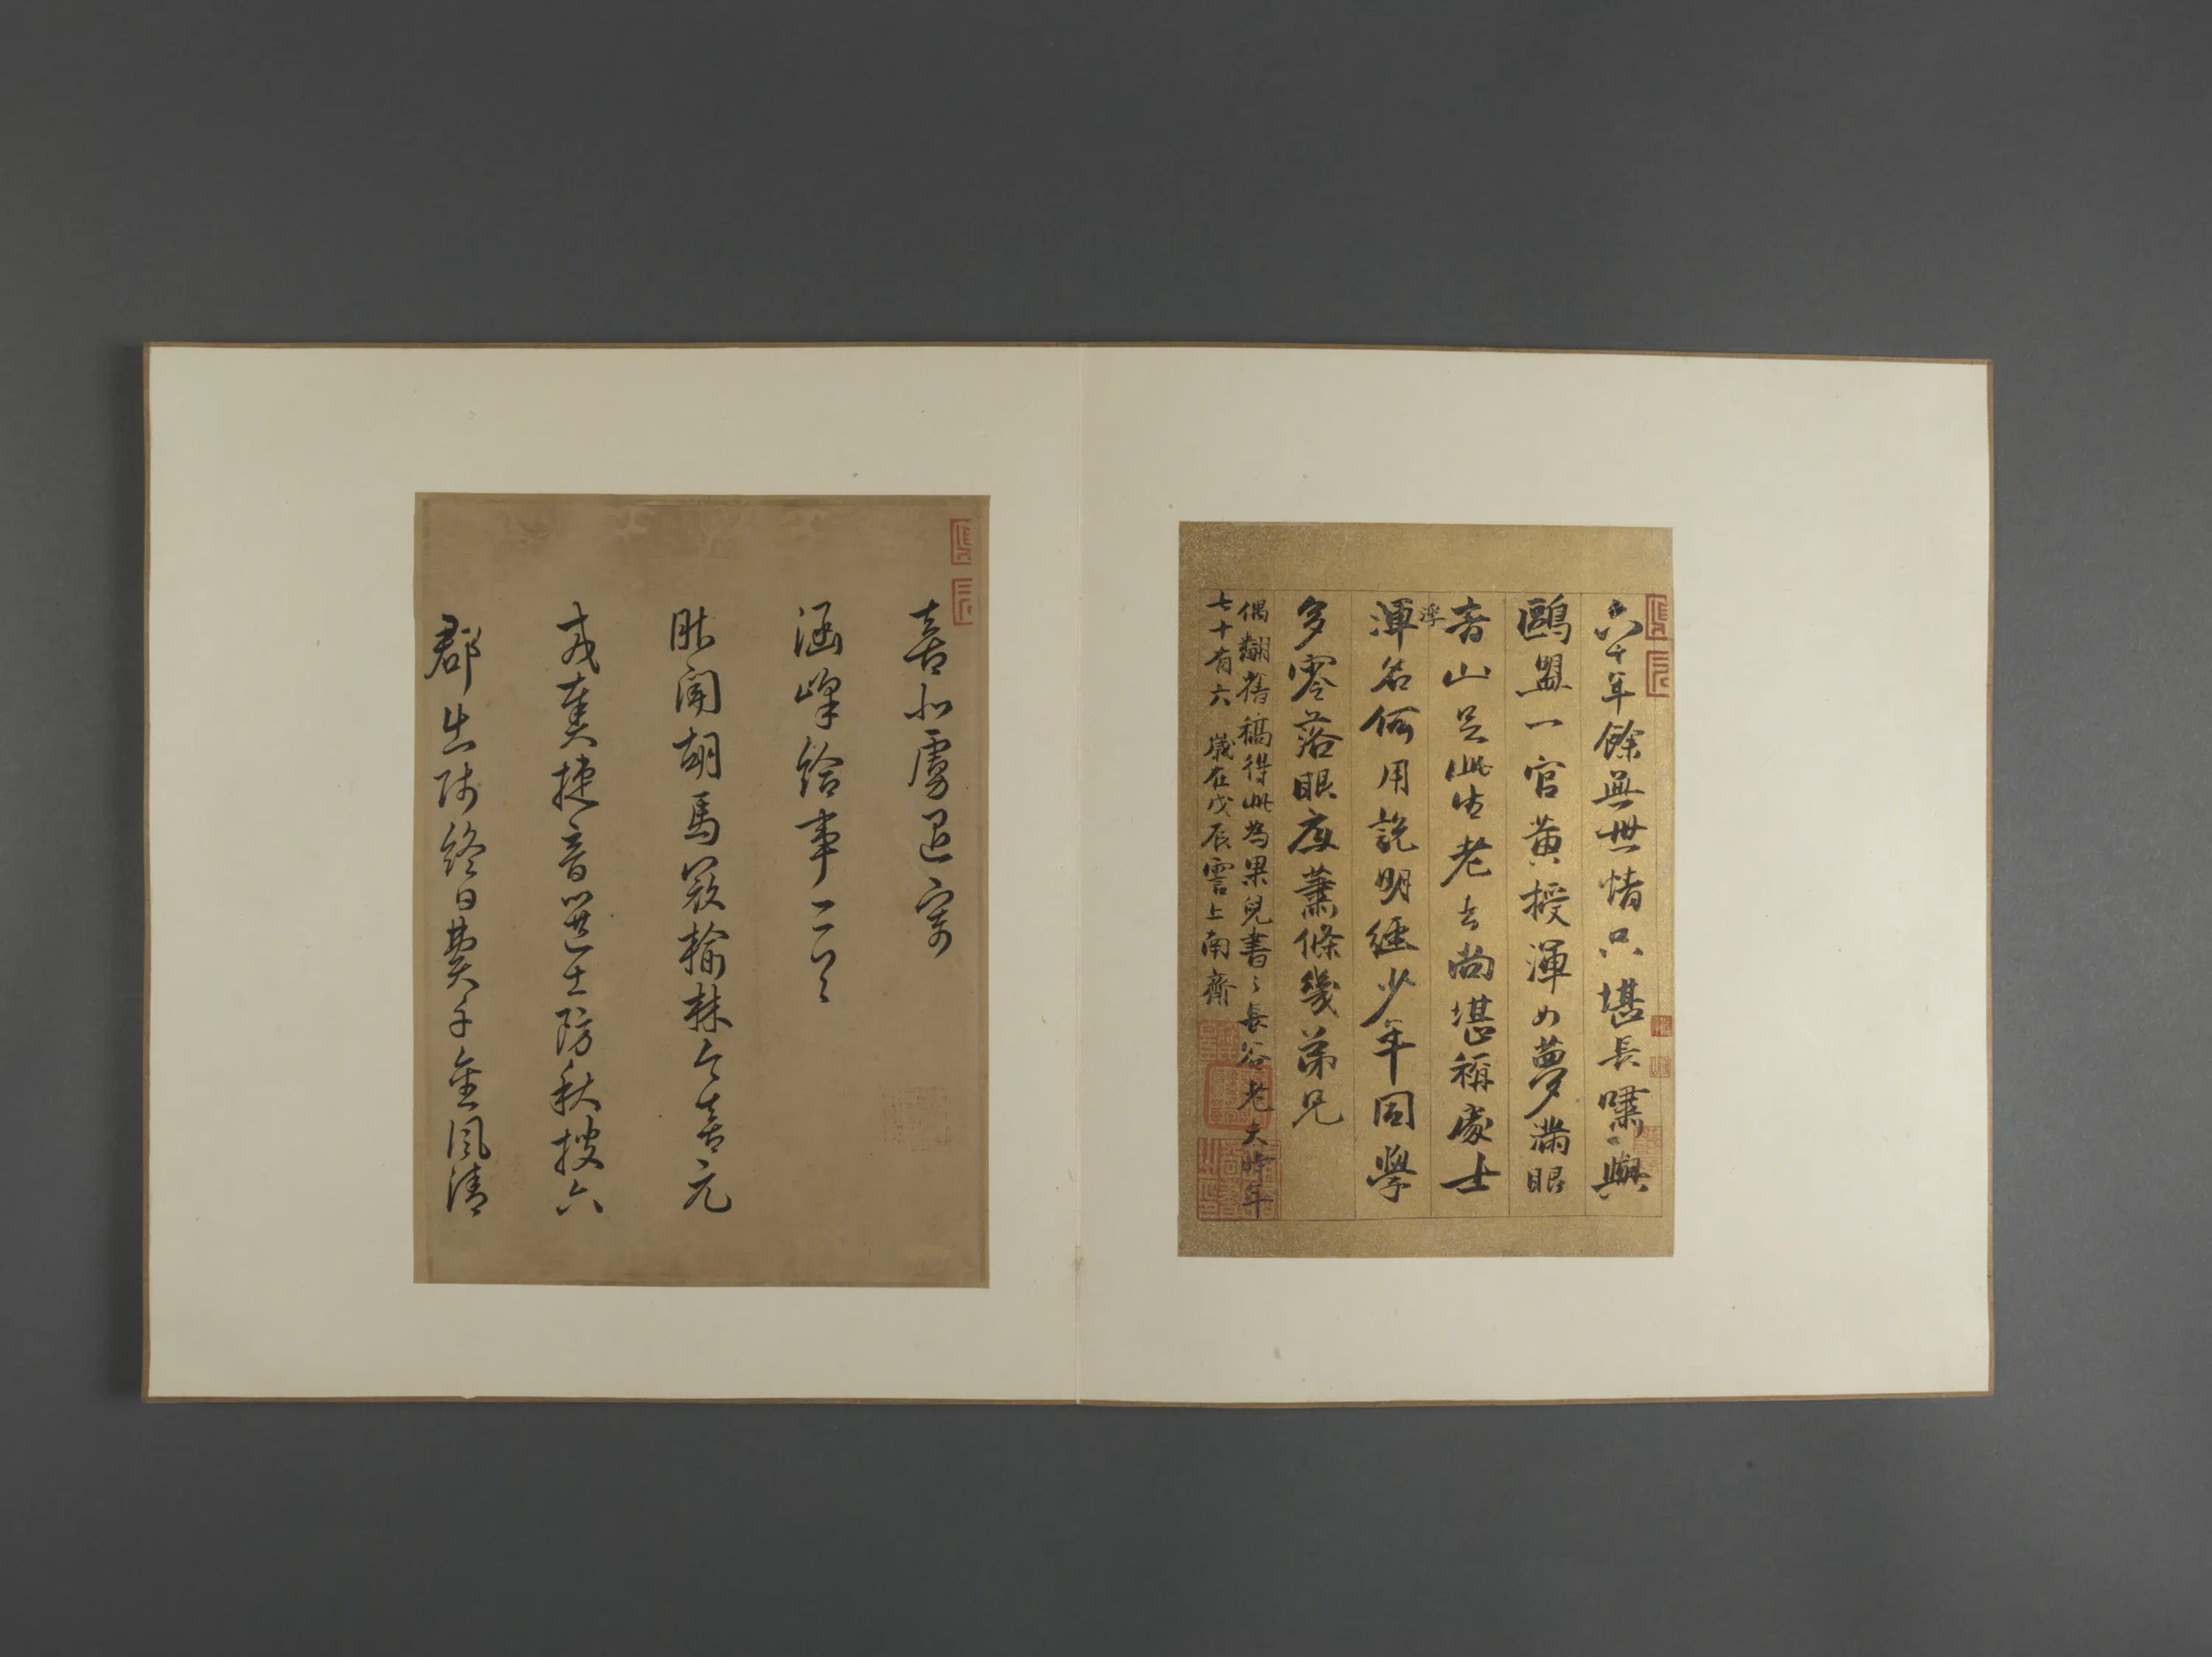 六十年餘無世情只堪長嘯與
鷗盟一官黃授渾如夢滿眼
青山足此生老去尚堪稱處士
浮
渾名何用說明經少年同學
多零落眼底蕭條幾弟兄
偶翻舊稿得此為果兒書之長谷老人時年
七十有六歲在戊辰雲上南齋
喜北虜退寄
涵峰給事二首
昨聞胡馬窺榆林今喜元
戎奏捷音選士防秋搜六
郡出師終日費千金風清